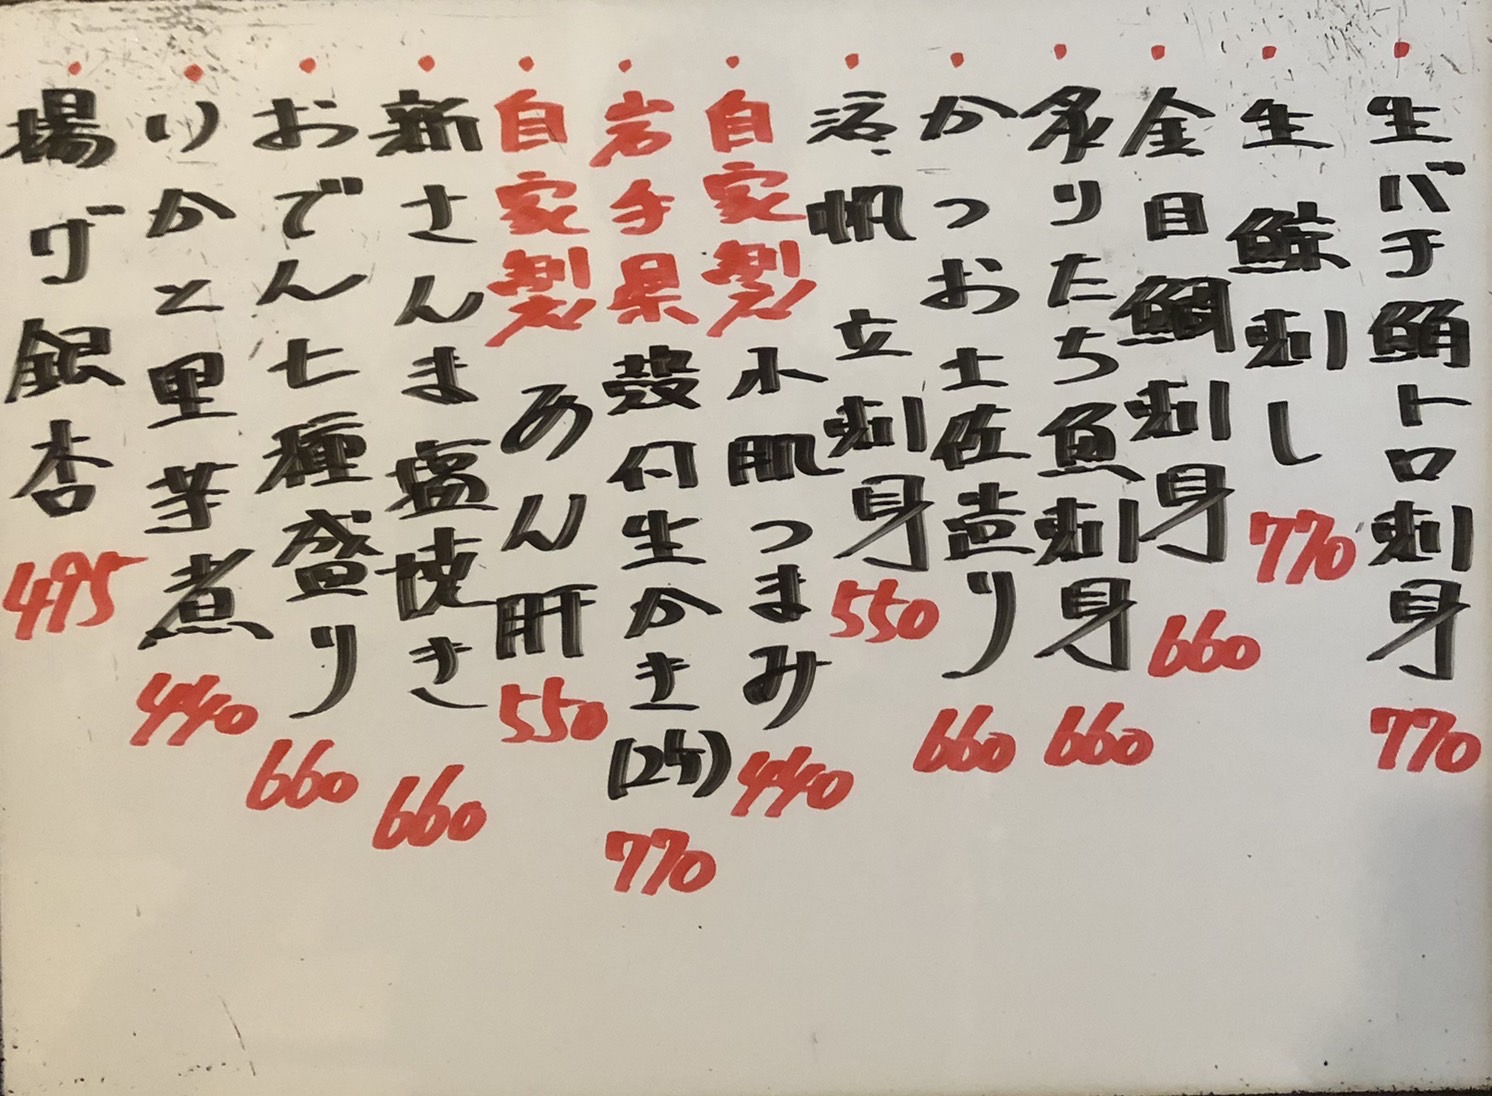 ・生バチ鮪トロ刺身 770
・生鯨刺し 770
・金目鯛刺身 660
・炙りたち魚刺身 660
・かつお土佐造り 660
・活帆立刺身 550
・自家製小肌つまみ 440
・岩手県殻付生かき(2ケ) 770
・自家製あん肝 550
・新さんま塩焼き 660
・おでん七種盛り 660
・いかと里芋煮 440
・揚げ銀杏 495